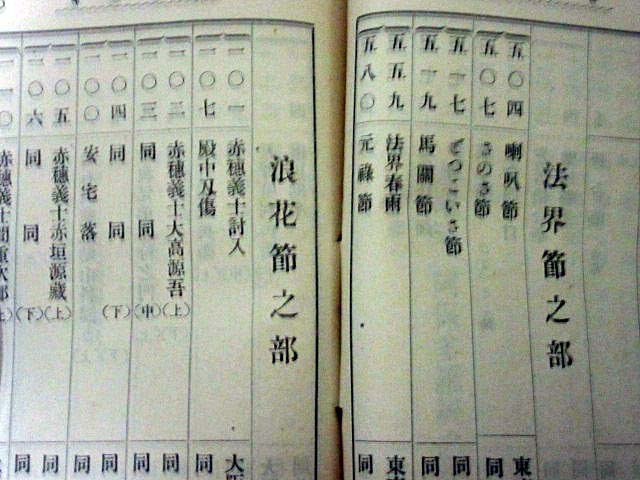 法界節之部
五〇四 喇叭節 東
五〇七 さのさ節 同
五一七 どつこいさ節 同
五一九 馬關節 同
五五九 法界春雨 東
五八〇 元祿節 同
浪花節之部
一〇一 赤穗義士討入 大
一〇七 殿中刄傷 同
一〇二 赤穗義士大高源吾(上) 同
一〇三 同 同 (中) 同
一〇四 同 同 (下) 同
一〇〇 安宅落 同
一〇五 赤穗義士赤垣源藏(上) 同
一〇六 同 同 (下) 同
一一〇 赤穗義士間重次郎(上)